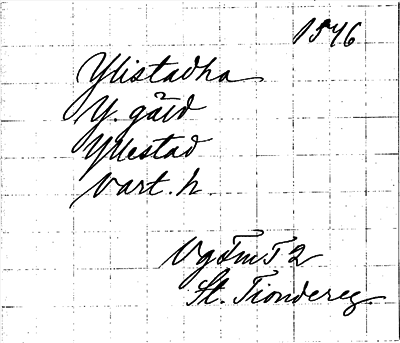 1546
Ylistadha
Y. gärd
Yllestad
Vart. h.
VgFmT 2
St. Tiondereg.